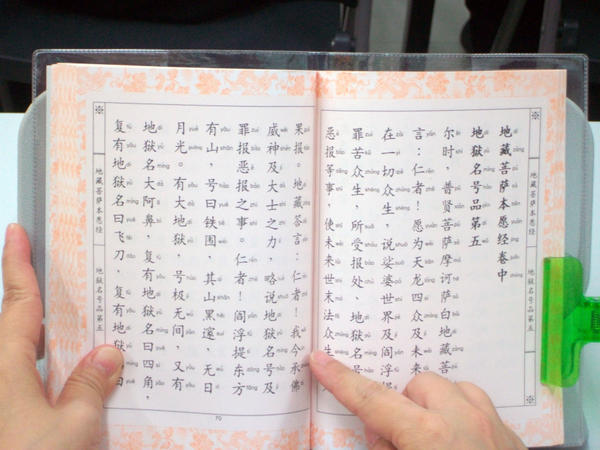 地藏菩萨本愿经卷中
地狱名号品第五
尔时，普贤菩萨摩诃萨白地藏菩
言：仁者！愿为天龙四众及未来
在一切众生，说娑婆世界及阎浮提
罪苦众生，所受报处，地狱名号
恶报等事，使未来世末法众生
果报。地藏答言：仁者！我今承佛
威神及大士之力，略说地狱名号及
罪报恶报之事。仁者！阎浮提东方
有山，号曰铁围，其山黑邃，无日
月光。有大地狱，号极无间，又有
地狱名大阿鼻，复有地狱名曰四角，
复有地狱名曰飞刀，复有地狱名曰
※ 地藏菩萨本愿经 地狱名号品第五
※ 地藏菩萨本愿经 地狱名号品第五
70